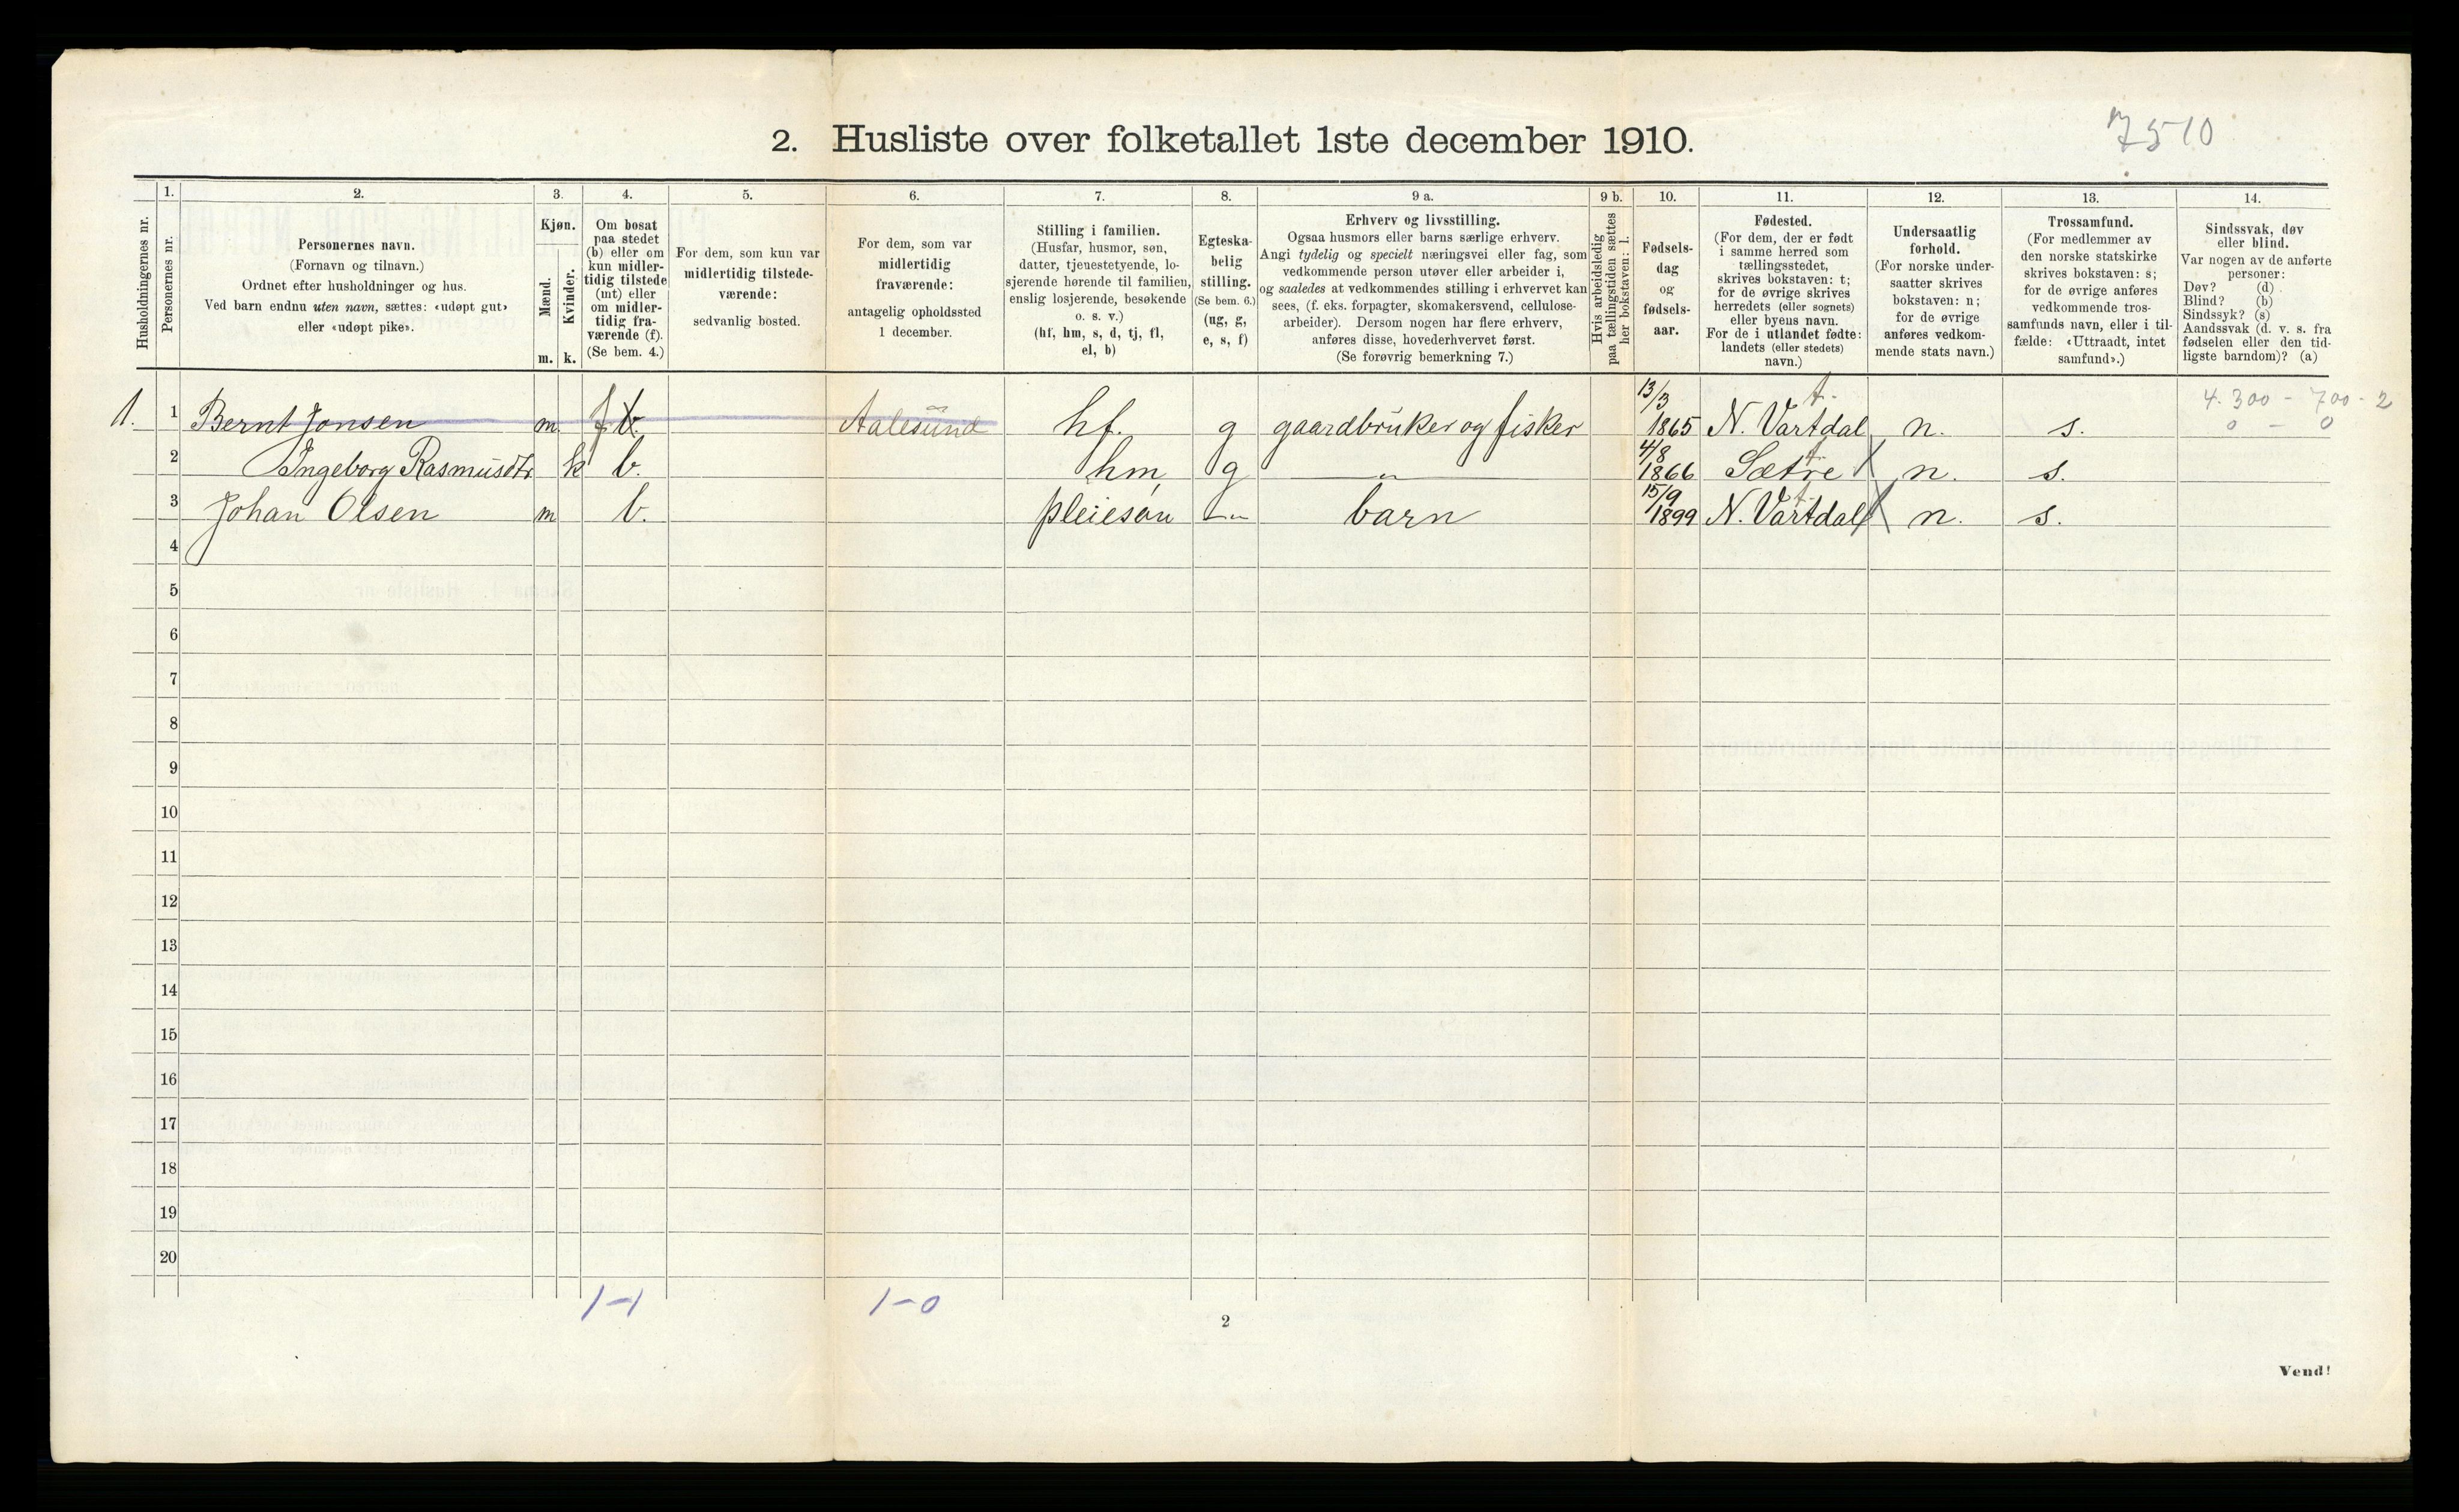 7510
2. Husliste over folketallet 1ste december 1910.
Husholdningernes nr.
1.
Personernes nr.
2.
Personernes navn.
(Fornavn og tilnavn.)
Ordnet efter husholdninger og hus.
Ved barn endnu uten navn, sættes: «udøpt gut»
eller «udøpt pike».
3.
Kjøn.
Mænd.
Kvinder.
m. k.
4.
Om bosat
paa stedet
(b) eller om
kun midler-
tidig tilstede
(mt) eller
om midler-
tidig fra-
værende (f).
(Se bem. 4.)
5.
For dem, som kun var
midlertidig tilstede-
værende:
sedvanlig bosted.
6.
For dem, som var
midlertidig
fraværende:
antagelig opholdssted
1 december.
7.
Stilling i familien.
(Husfar, husmor, søn,
datter, tjenestetyende, lo-
sjerende hørende til familien,
enslig losjerende, besøkende
o. s. v.)
(hf, hm, s, d, tj, fl,
el, b)
8.
Egteska-
belig
stilling.
(Se bem. 6.)
(ug, g,
e, s, f)
9 a.
Erhverv og livsstilling.
Ogsaa husmors eller barns særlige erhverv.
Angi tydelig og specielt næringsvei eller fag, som
vedkommende person utøver eller arbeider i,
og saaledes at vedkommendes stilling i erhvervet kan
sees, (f. eks. forpagter, skomakersvend, cellulose-
arbeider). Dersom nogen har flere erhverv,
anføres disse, hovederhvervet først.
(Se forøvrig bemerkning 7.)
9 b.
Hvis arbeidsledig
paa tællingstiden sættes
her bokstaven: l.
10.
Fødsels-
dag
og
fødsels-
aar.
11.
Fødested.
(For dem, der er født
i samme herred som
tællingsstedet,
skrives bokstaven: t;
for de øvrige skrives
herredets (eller sognets)
eller byens navn.
For de i utlandet fødte:
landets (eller stedets)
navn.)
12.
Undersaatlig
forhold.
(For norske under-
saatter skrives
bokstaven: n;
for de øvrige
anføres vedkom-
mende stats navn.)
13.
Trossamfund.
(For medlemmer av
den norske statskirke
skrives bokstaven: s;
for de øvrige anføres
vedkommende tros-
samfunds navn, eller i til-
fælde: «Uttraadt, intet
samfund».)
14.
Sindssvak, døv
eller blind.
Var nogen av de anførte
personer:
Døv? (d)
Blind? (b)
Sindssyk? (s)
Aandssvak (d. v. s. fra
fødselen eller den tid-
ligste barndom)? (a)
1. 1 Bernt Jonsen m. f b. Aalesund hf. g gaardbruker og fisker 13/3 1865 N. Vartdal t. n. s. 4.300 - 700 - 2
0 - 0
2 Ingeborg Rasmusdtr k b. hm, g —„— 4/8 1866 Sætre t. n. s.
3 Johan Olsen m b. pleiesøn —„— barn 15/9 1899 N. Vartdal t. n. s.
4
5
6
7
8
9
10
11
12
13
14
15
16
17
18
19
20
1-1 1-0
2
Vend!